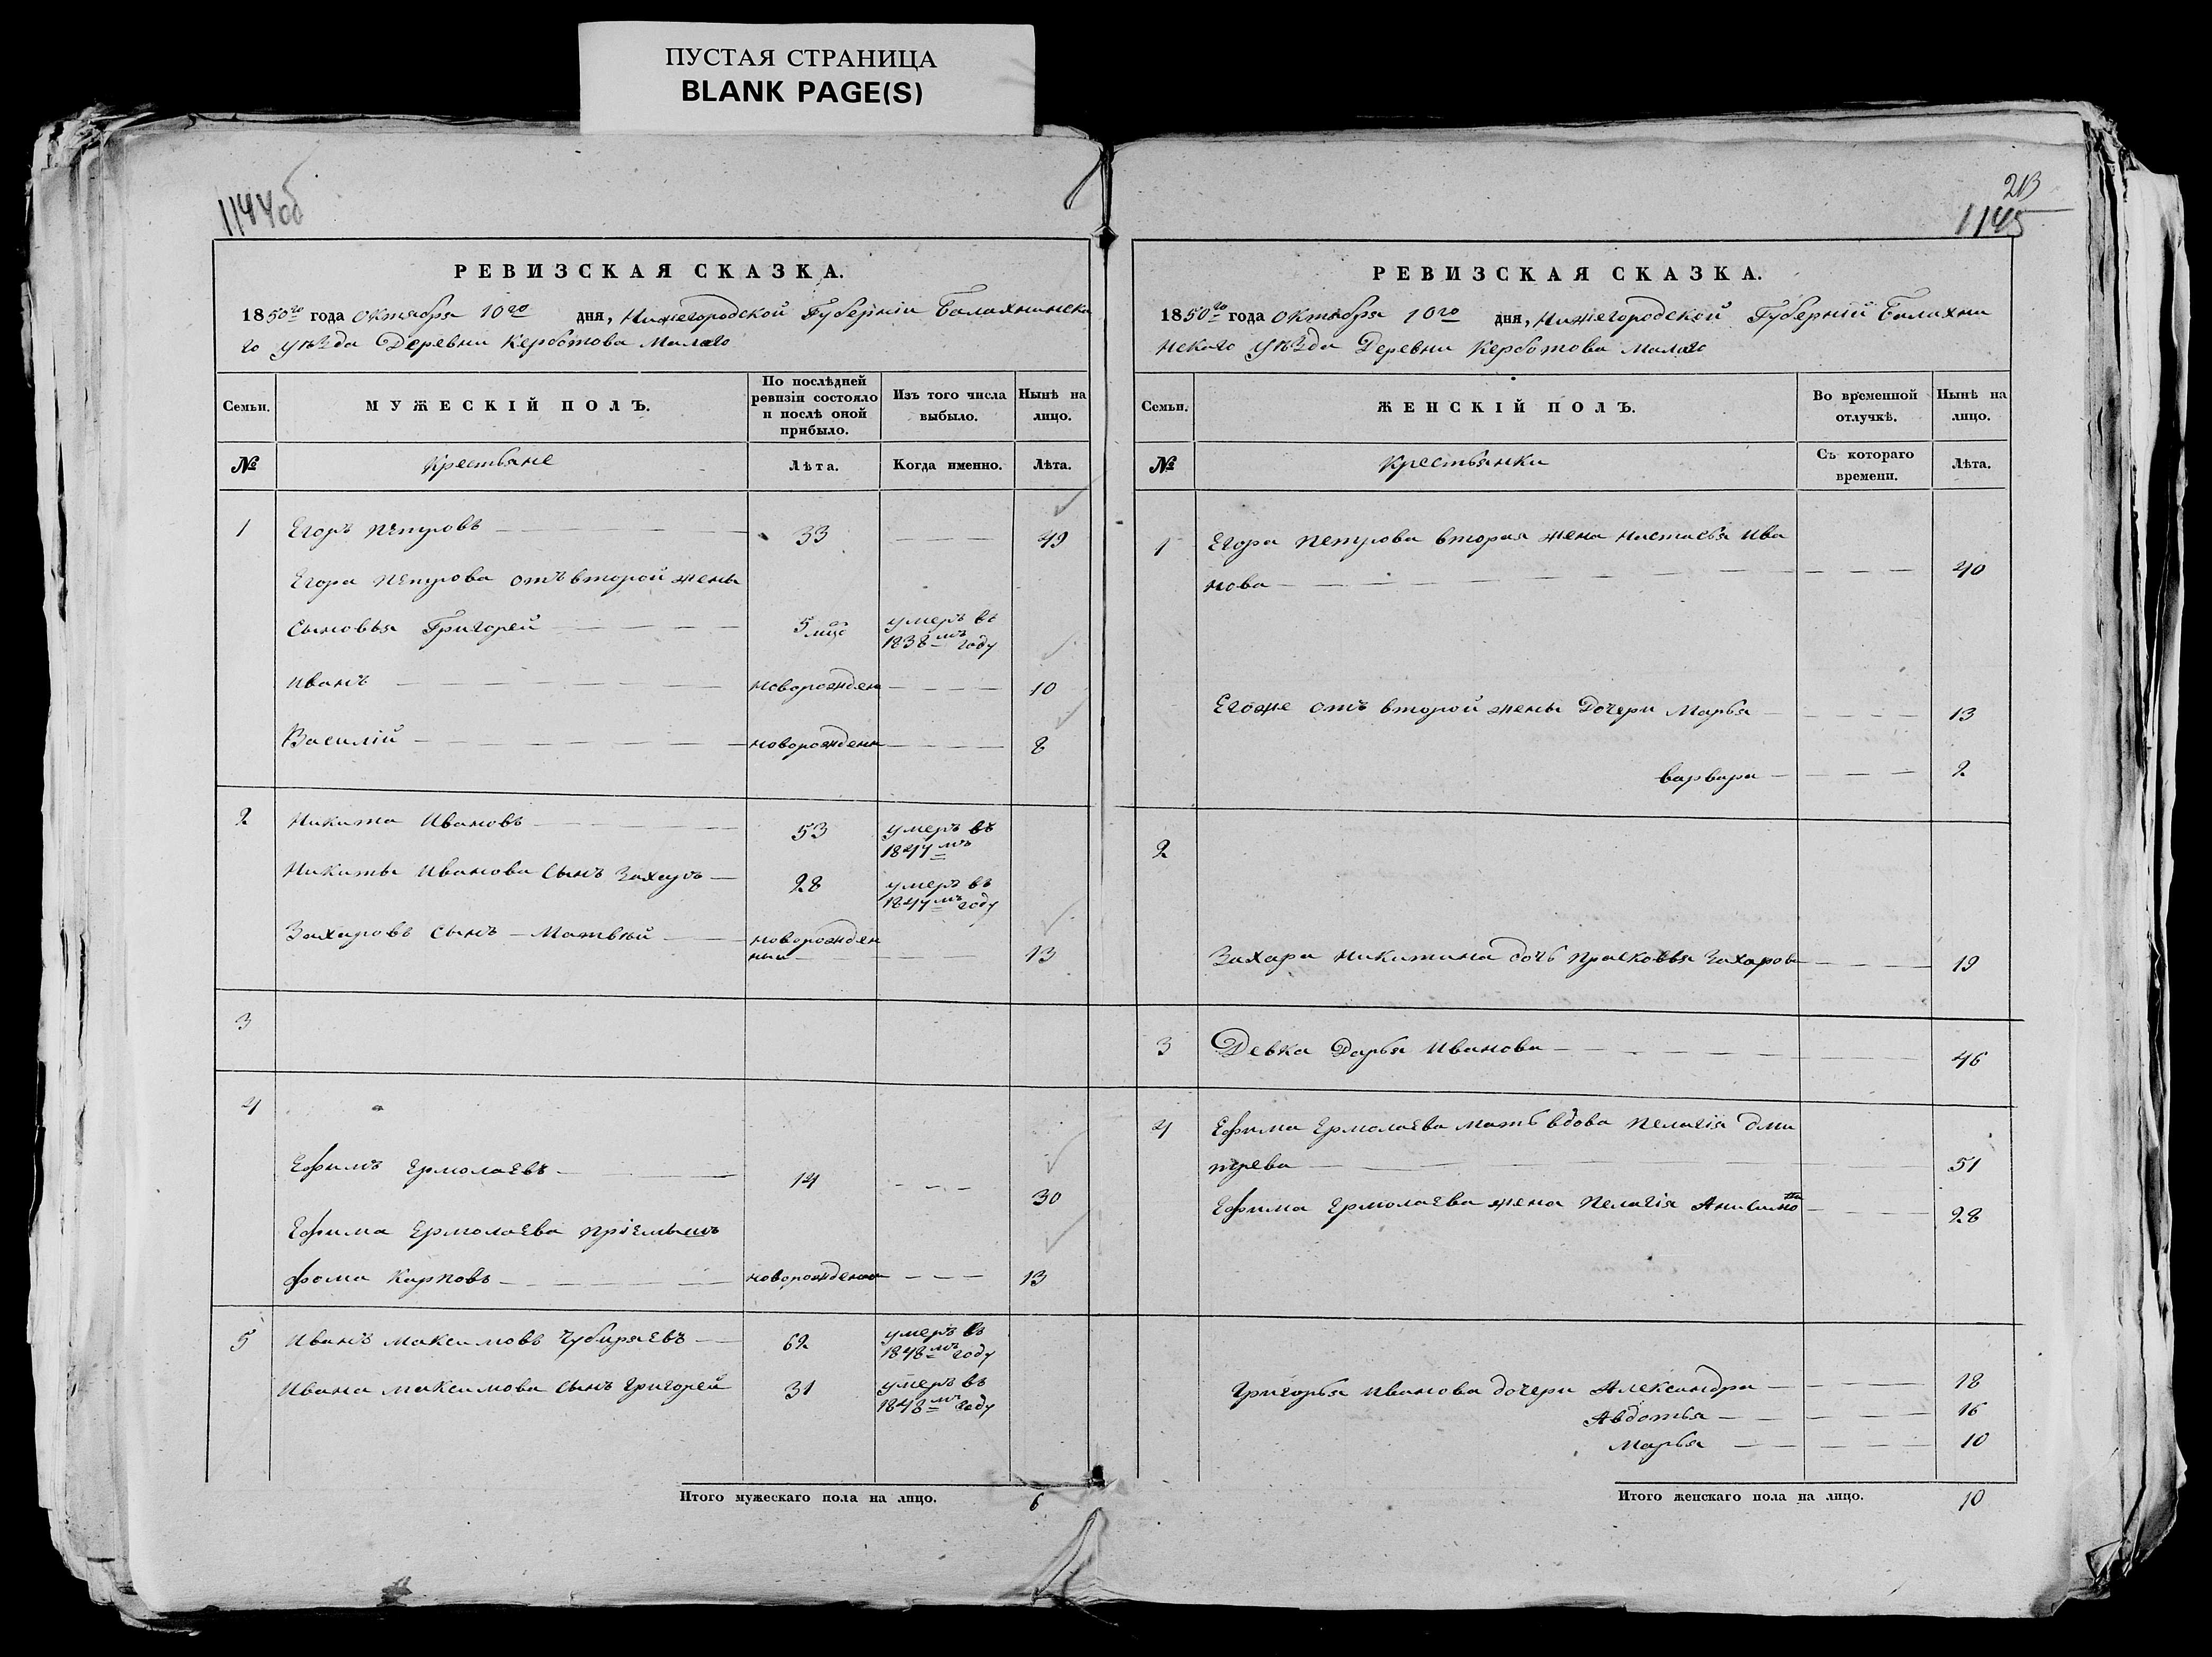 ПУСТАЯ СТРАНИЦА
BLANK PAGE(S)
1144об
РЕВИЗСКАЯ СКАЗКА.
1850го года Октября 10го дня, Нижегородской Губернiи Балахнинска
го уѣзда Деревни Керботова Малаго
Семьи.
МУЖЕСКІЙ ПОЛЪ.
По послѣдней ревизіи состояло и послѣ оной прибыло.
Изъ того числа выбыло.
Нынѣ на лицо.
№
Крестьяне
Лѣта.
Когда именно.
Лѣта.
1 Егоръ Петровъ 33 49
Егора Петрова отъ второй жены
сыновья Григорей 5 умеръ въ 1838мъ году
Иванъ новорожден 10
Василій новорожденн 8
2 Никита Ивановъ 53 умеръ въ 1847мъ
Никиты Иванова сынъ Захаръ 28 умеръ въ 1847мъ году
Захаровъ сынъ Матвей новорожденный 13
3
4
Ефимъ Ермолаевъ 14 30
Ефима Ермолаева пріемышъ
Фома Карповъ новорожденн 13
5 Иванъ Максимовъ Чубиряевъ 62 умеръ въ 1848мъ году
Ивана Максимова сынъ Григорей 31 умеръ въ 1848мъ году
Итого мужескаго пола на лицо. 6
213
1145
РЕВИЗСКАЯ СКАЗКА.
1850го года Октября 10го дня, Нижегородской Губерніи Балахни
нскаго уѣзда Деревни Керботова Малаго
Семьи.
ЖЕНСКІЙ ПОЛЪ.
Во временной отлучкѣ.
Нынѣ на лицо.
№
Крестьянки
Съ котораго времени.
Лѣта.
1 Егора Петрова вторая жена Настасья Ива
нова 40
Егоже отъ второй жены Дочери Марья 13
Варвара 2
2
Захара Никитина дочь Прасковья Захарова 19
3 Девка Дарья Иванова 46
4 Ефима Ермолаева мать вдова Пелагія Дми
трева 51
Ефима Ермолаева жена Пелагія 28
Григорья Иванова дочери Александра 18
Авдотья 16
Марья 10
Итого женскаго пола на лицо. 10